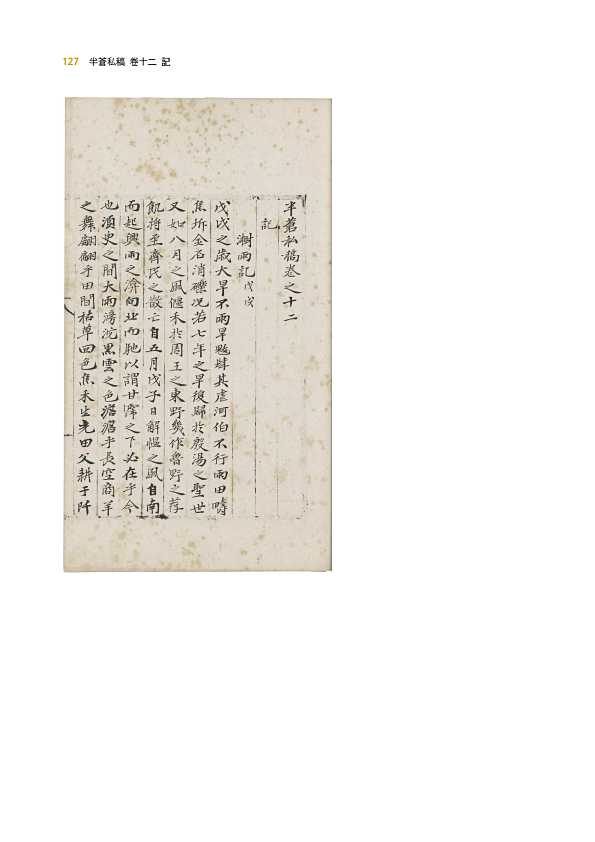 127 半蒼私稿 卷十二 記
半蒼私稿卷之十二
記
澍雨記戊戌
戊戌之歲大旱不雨旱魃肆其虐河伯不行雨田疇
焦坼金石消礫况若七年之旱復歸於殷湯之聖世
又如八月之風偃禾於周王之東野幾作魯野之荐
飢將至齊民之散亡自五月戊子日解慍之風自南
而起興雨之濟向北而馳以謂甘霈之下必在乎今
也湏史之間大雨滂沱黑雲之色澹澹乎長空商羊
之舞翩翩乎田間枯草回色焦禾生光田父耕于阡